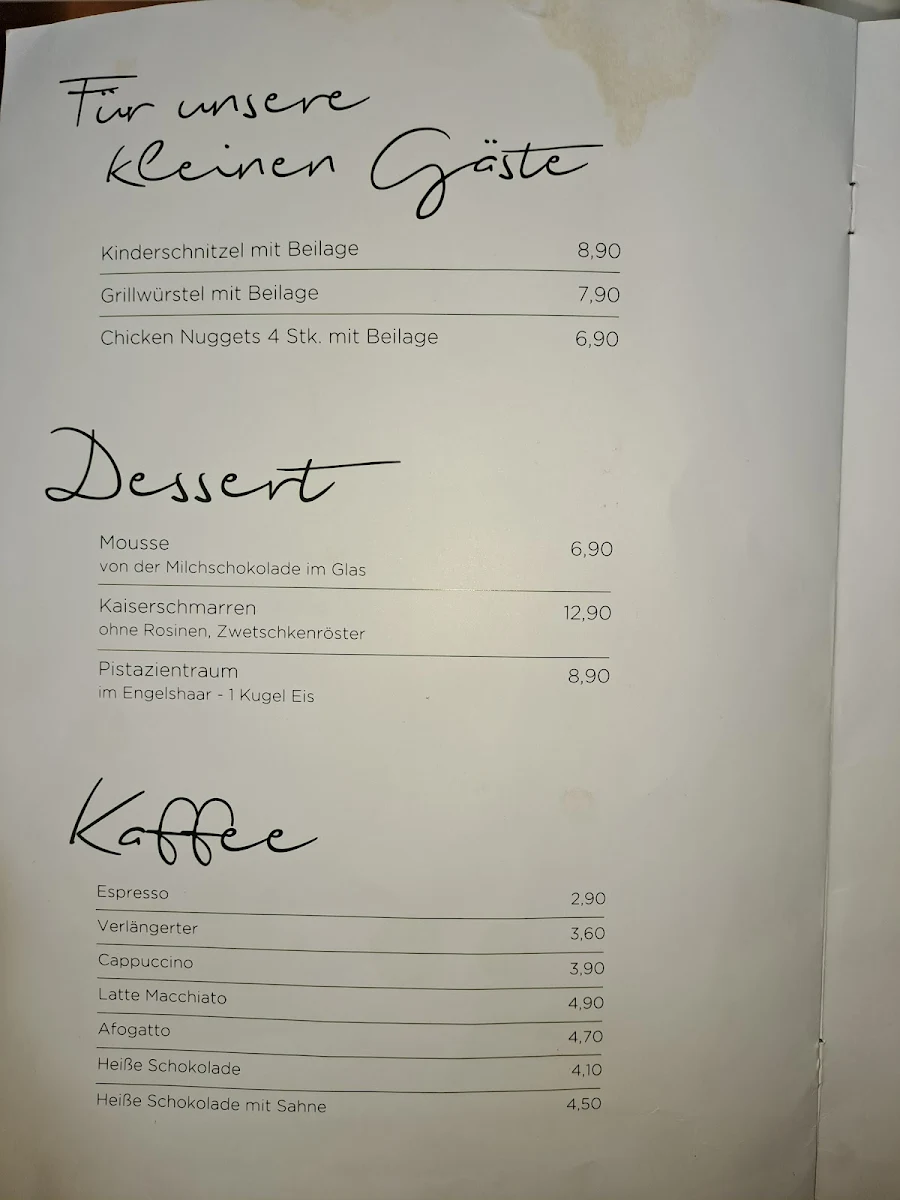 Für unsere
kleinen Gäste
Kinderschnitzel mit Beilage 8,90
Grillwürstel mit Beilage 7,90
Chicken Nuggets 4 Stk. mit Beilage 6,90
Dessert
Mousse 6,90
von der Milchschokolade im Glas
Kaiserschmarren 12,90
ohne Rosinen, Zwetschkenröster
Pistazientraum 8,90
im Engelshaar - 1 Kugel Eis
Kaffee
Espresso 2,90
Verlängerter 3,60
Cappuccino 3,90
Latte Macchiato 4,90
Afogatto 4,70
Heiße Schokolade 4,10
Heiße Schokolade mit Sahne 4,50